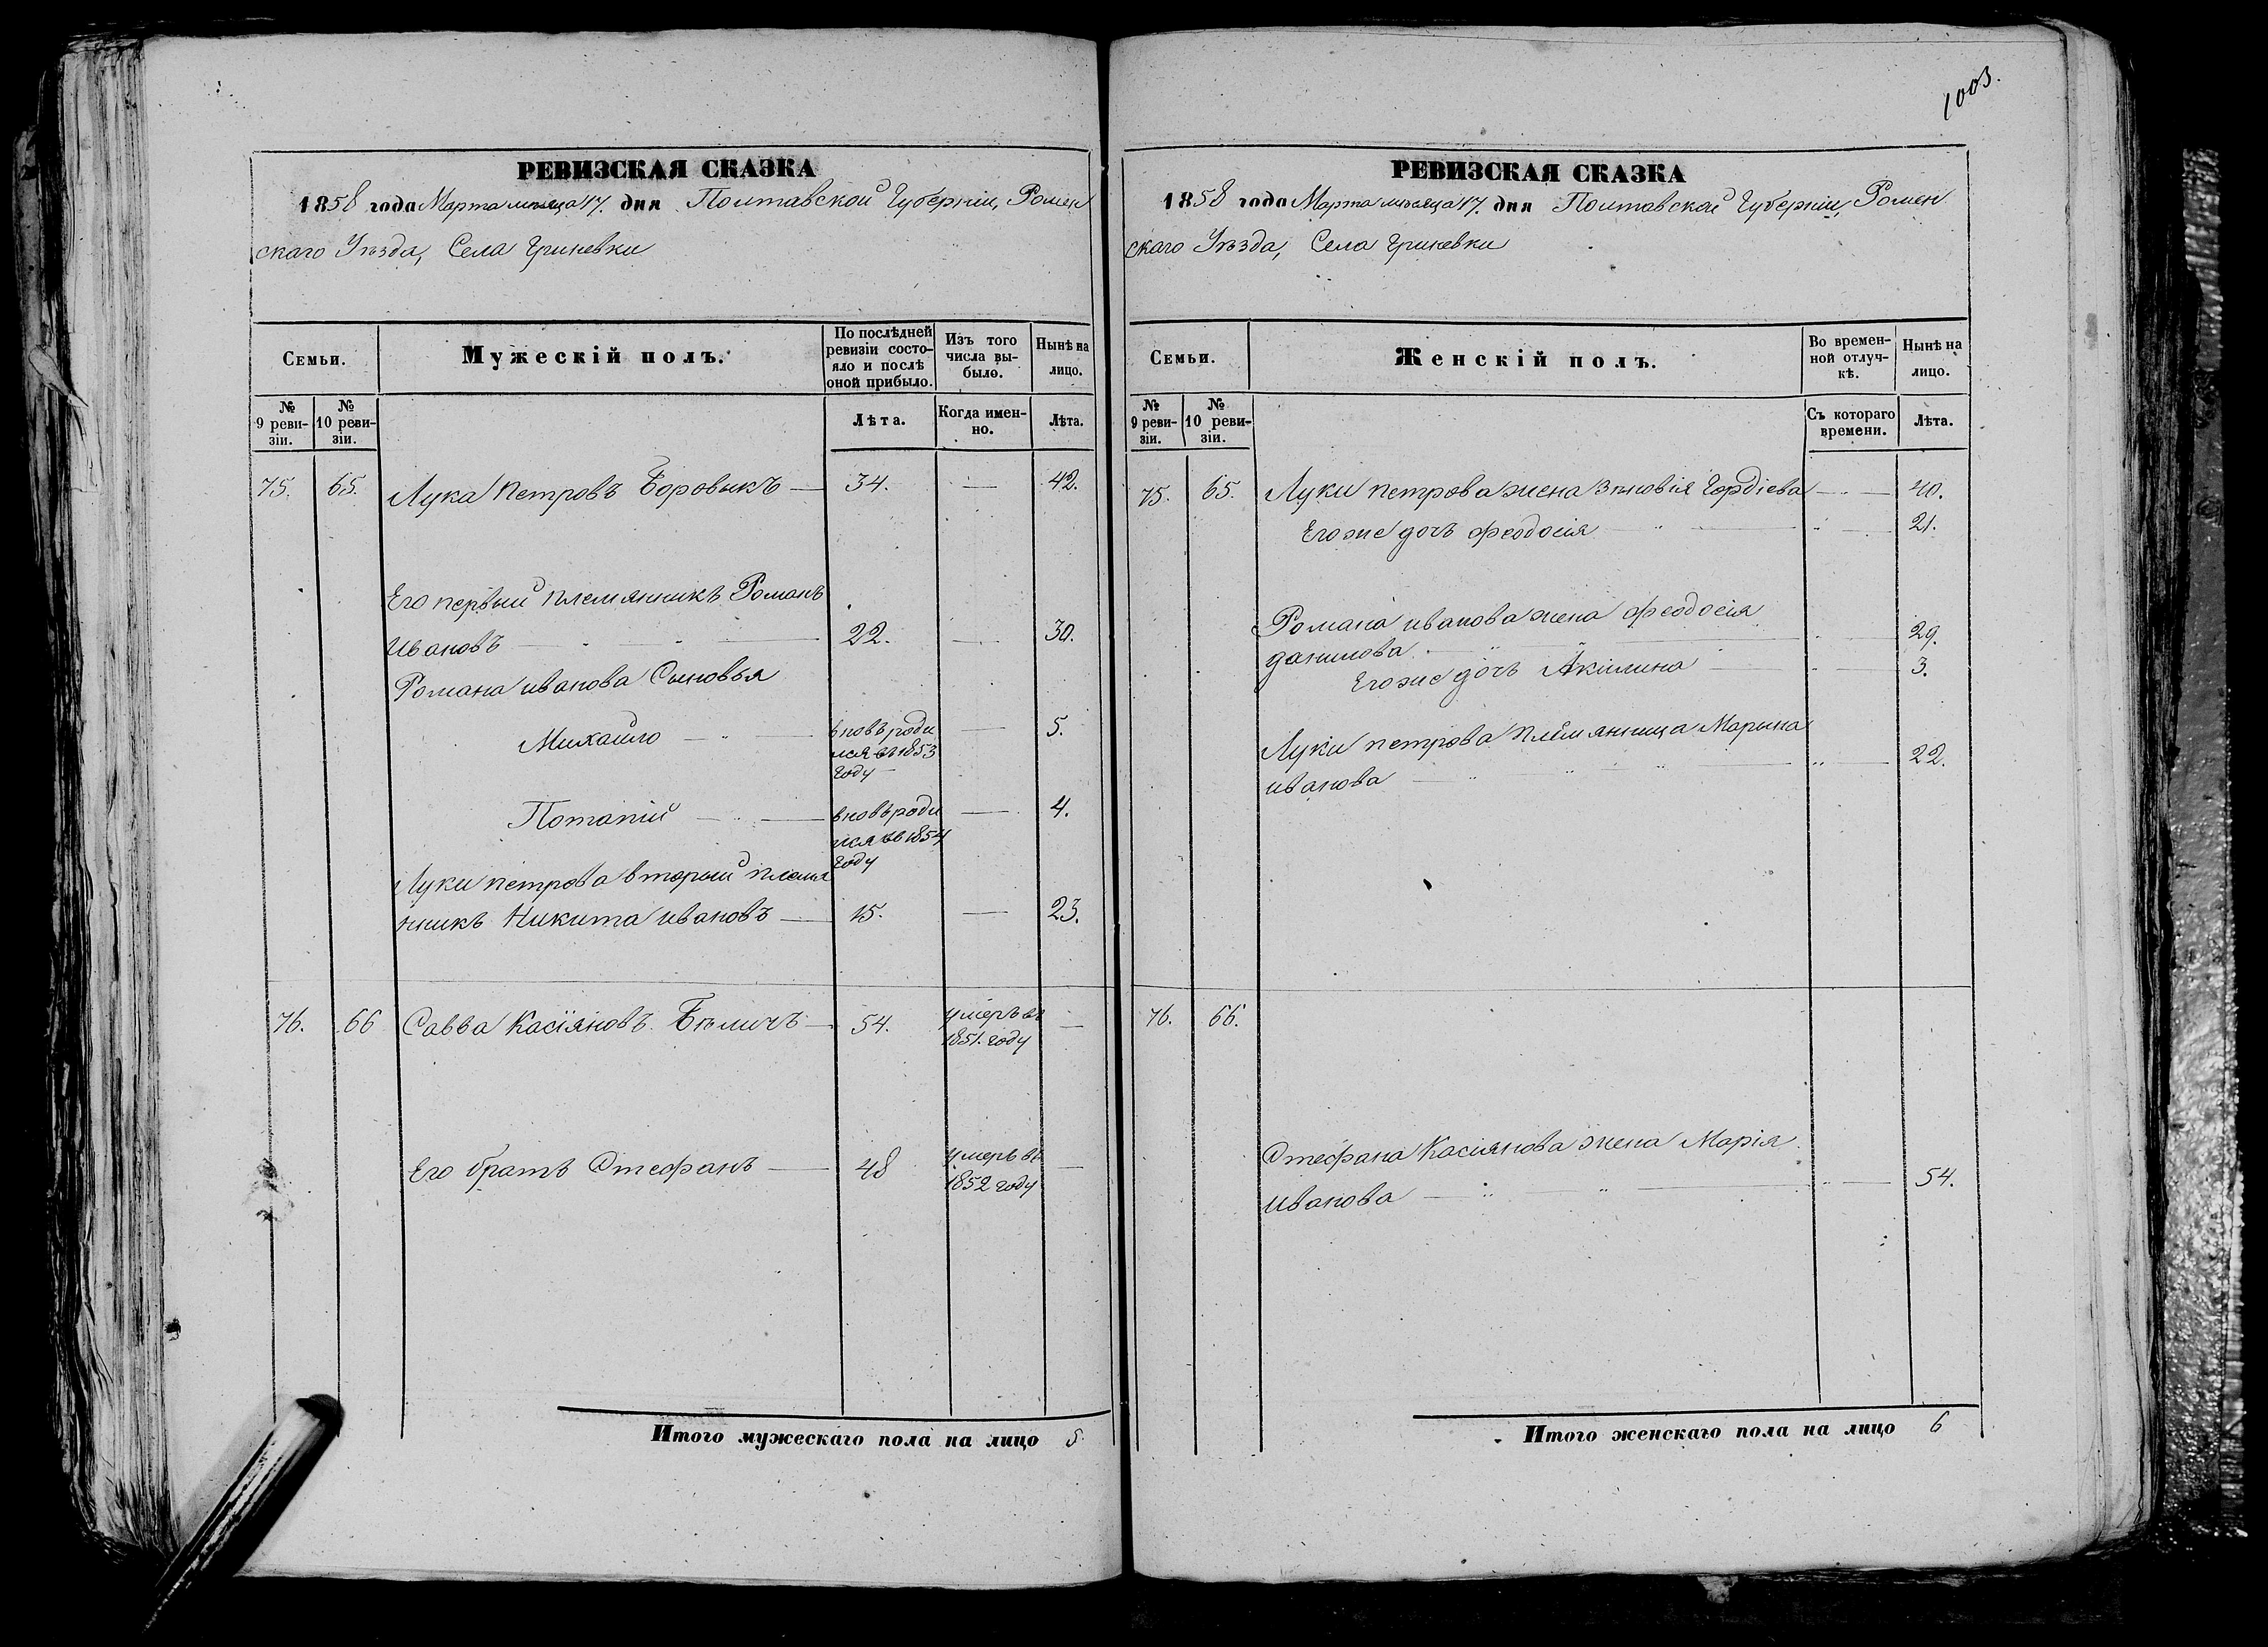 1003.
РЕВИЗСКАЯ СКАЗКА
1858 года Марта мѣсяца 17. дня Полтавской Губерніи, Ромен
скаго Уѣзда, Села Гриневки
Семьи.
Мужескій полъ.
По послѣдней ревизіи состояло и послѣ оной прибыло.
Изъ того числа выбыло.
Нынѣ на лицо.
№ 9 ревизіи.
№ 10 ревизіи.
Лѣта.
Когда именно.
Лѣта.
75. 65. Лука Петровъ Боровыкъ — 34. — 42.
Его первый племянникъ Романъ
ивановъ — 22. — 30.
Романа иванова Сыновья
Михайло — вновь роди — 5.
лся въ 1853
году
Потапій — вновь роди — 4.
лся въ 1854
году
Луки петрова вторый племя
нникъ Никита ивановъ — 15. — 23.
76. 66 Савва Касіяновъ Бѣличъ — 54. умеръ въ —
1851. году
Его братъ Стефанъ — 48 умеръ въ —
1852 году
Итого мужескаго пола на лицо 5.
РЕВИЗСКАЯ СКАЗКА
1858 года Марта мѣсяца 17. дня Полтавской Губерніи, Ромен
скаго Уѣзда, Села Гриневки
Семьи.
Женскій полъ.
Во временной отлучкѣ.
Нынѣ на лицо.
№ 9 ревизіи.
№ 10 ревизіи.
Съ котораго времени.
Лѣта.
75. 65. Луки петрова жена Зѣновія Гордіева — 40.
Его же дочь Феодосія — 21.
Романа иванова жена Феодосія
данилова — 29.
Его же дочь Акилина — 3.
Луки петрова племянница Марына
иванова — 22.
76. 66.
Стефана Касіянова жена Марія
иванова — 54.
Итого женскаго пола на лицо 6